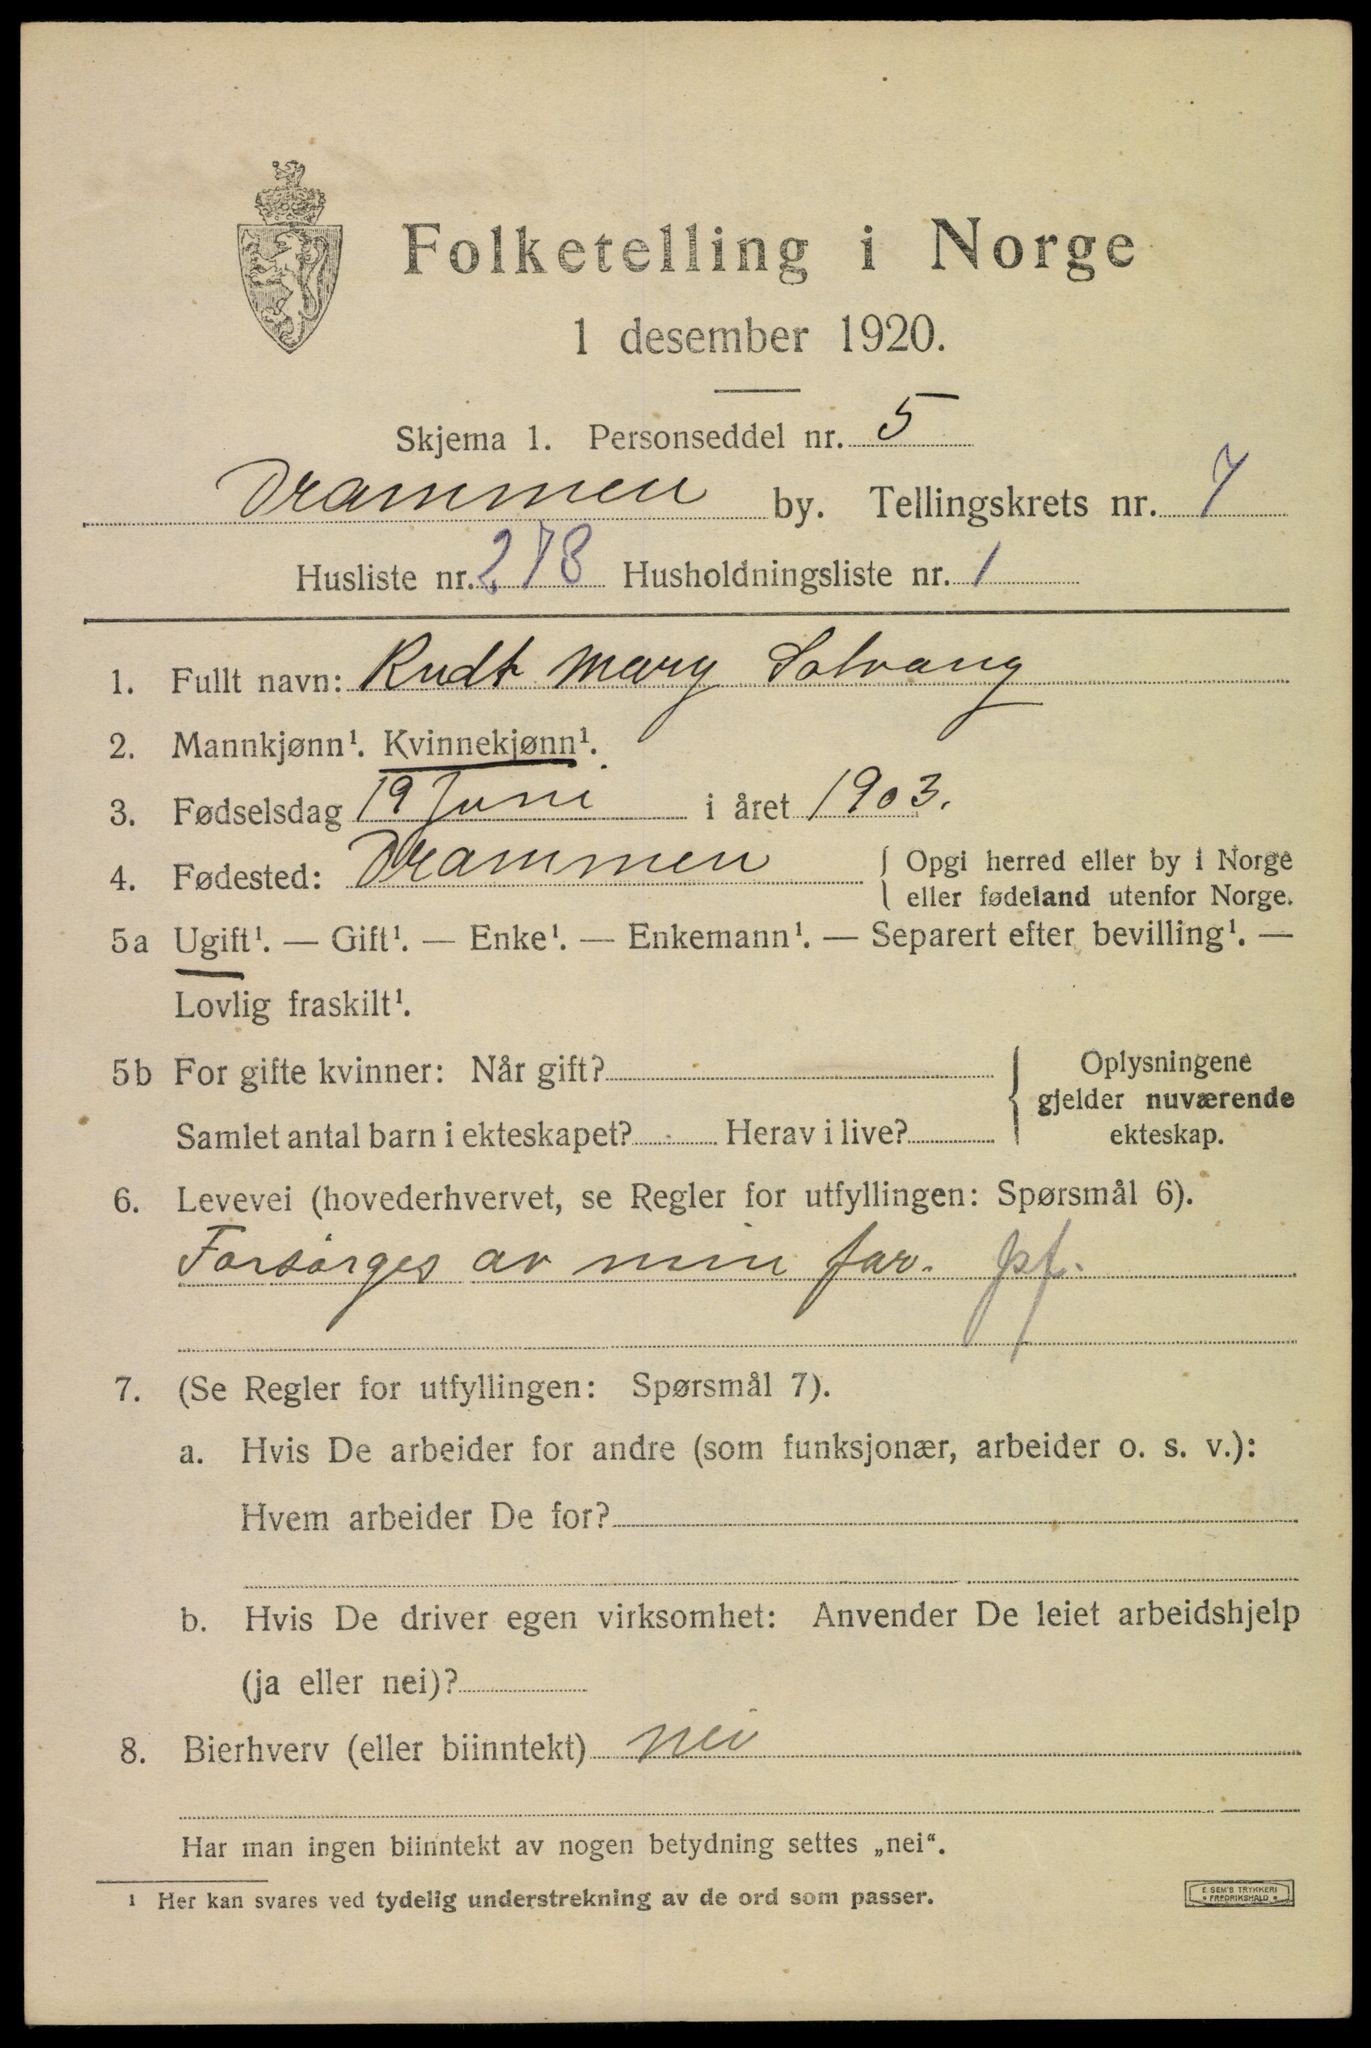 Folketelling i Norge
1 desember 1920.
Skjema 1. Personseddel nr. 5
Drammen by. Tellingskrets nr. 7
Husliste nr. 278 Husholdningsliste nr. 1
1. Fullt navn: Rudt Mary Solvang
2. Mannkjønn¹. Kvinnekjønn¹.
3. Fødselsdag 19 Juni i året 1903.
4. Fødested: Drammen { Opgi herred eller by i Norge
eller fødeland utenfor Norge.
5a Ugift¹. — Gift¹. — Enke¹. — Enkemann¹. — Separert efter bevilling¹. —
Lovlig fraskilt¹.
5b For gifte kvinner: Når gift? { Oplysningene
gjelder nuværende
Samlet antal barn i ekteskapet? Herav i live? ekteskap.
6. Levevei (hovederhvervet, se Regler for utfyllingen: Spørsmål 6).
Forsørges av min far. pf.
7. (Se Regler for utfyllingen: Spørsmål 7).
a. Hvis De arbeider for andre (som funksjonær, arbeider o. s. v.):
Hvem arbeider De for?
b. Hvis De driver egen virksomhet: Anvender De leiet arbeidshjelp
(ja eller nei)?
8. Bierhverv (eller biinntekt) nei
Har man ingen biinntekt av nogen betydning settes „nei“.
¹ Her kan svares ved tydelig understrekning av de ord som passer.
E. SEM'S TRYKKERI
* FREDRIKSHALD *